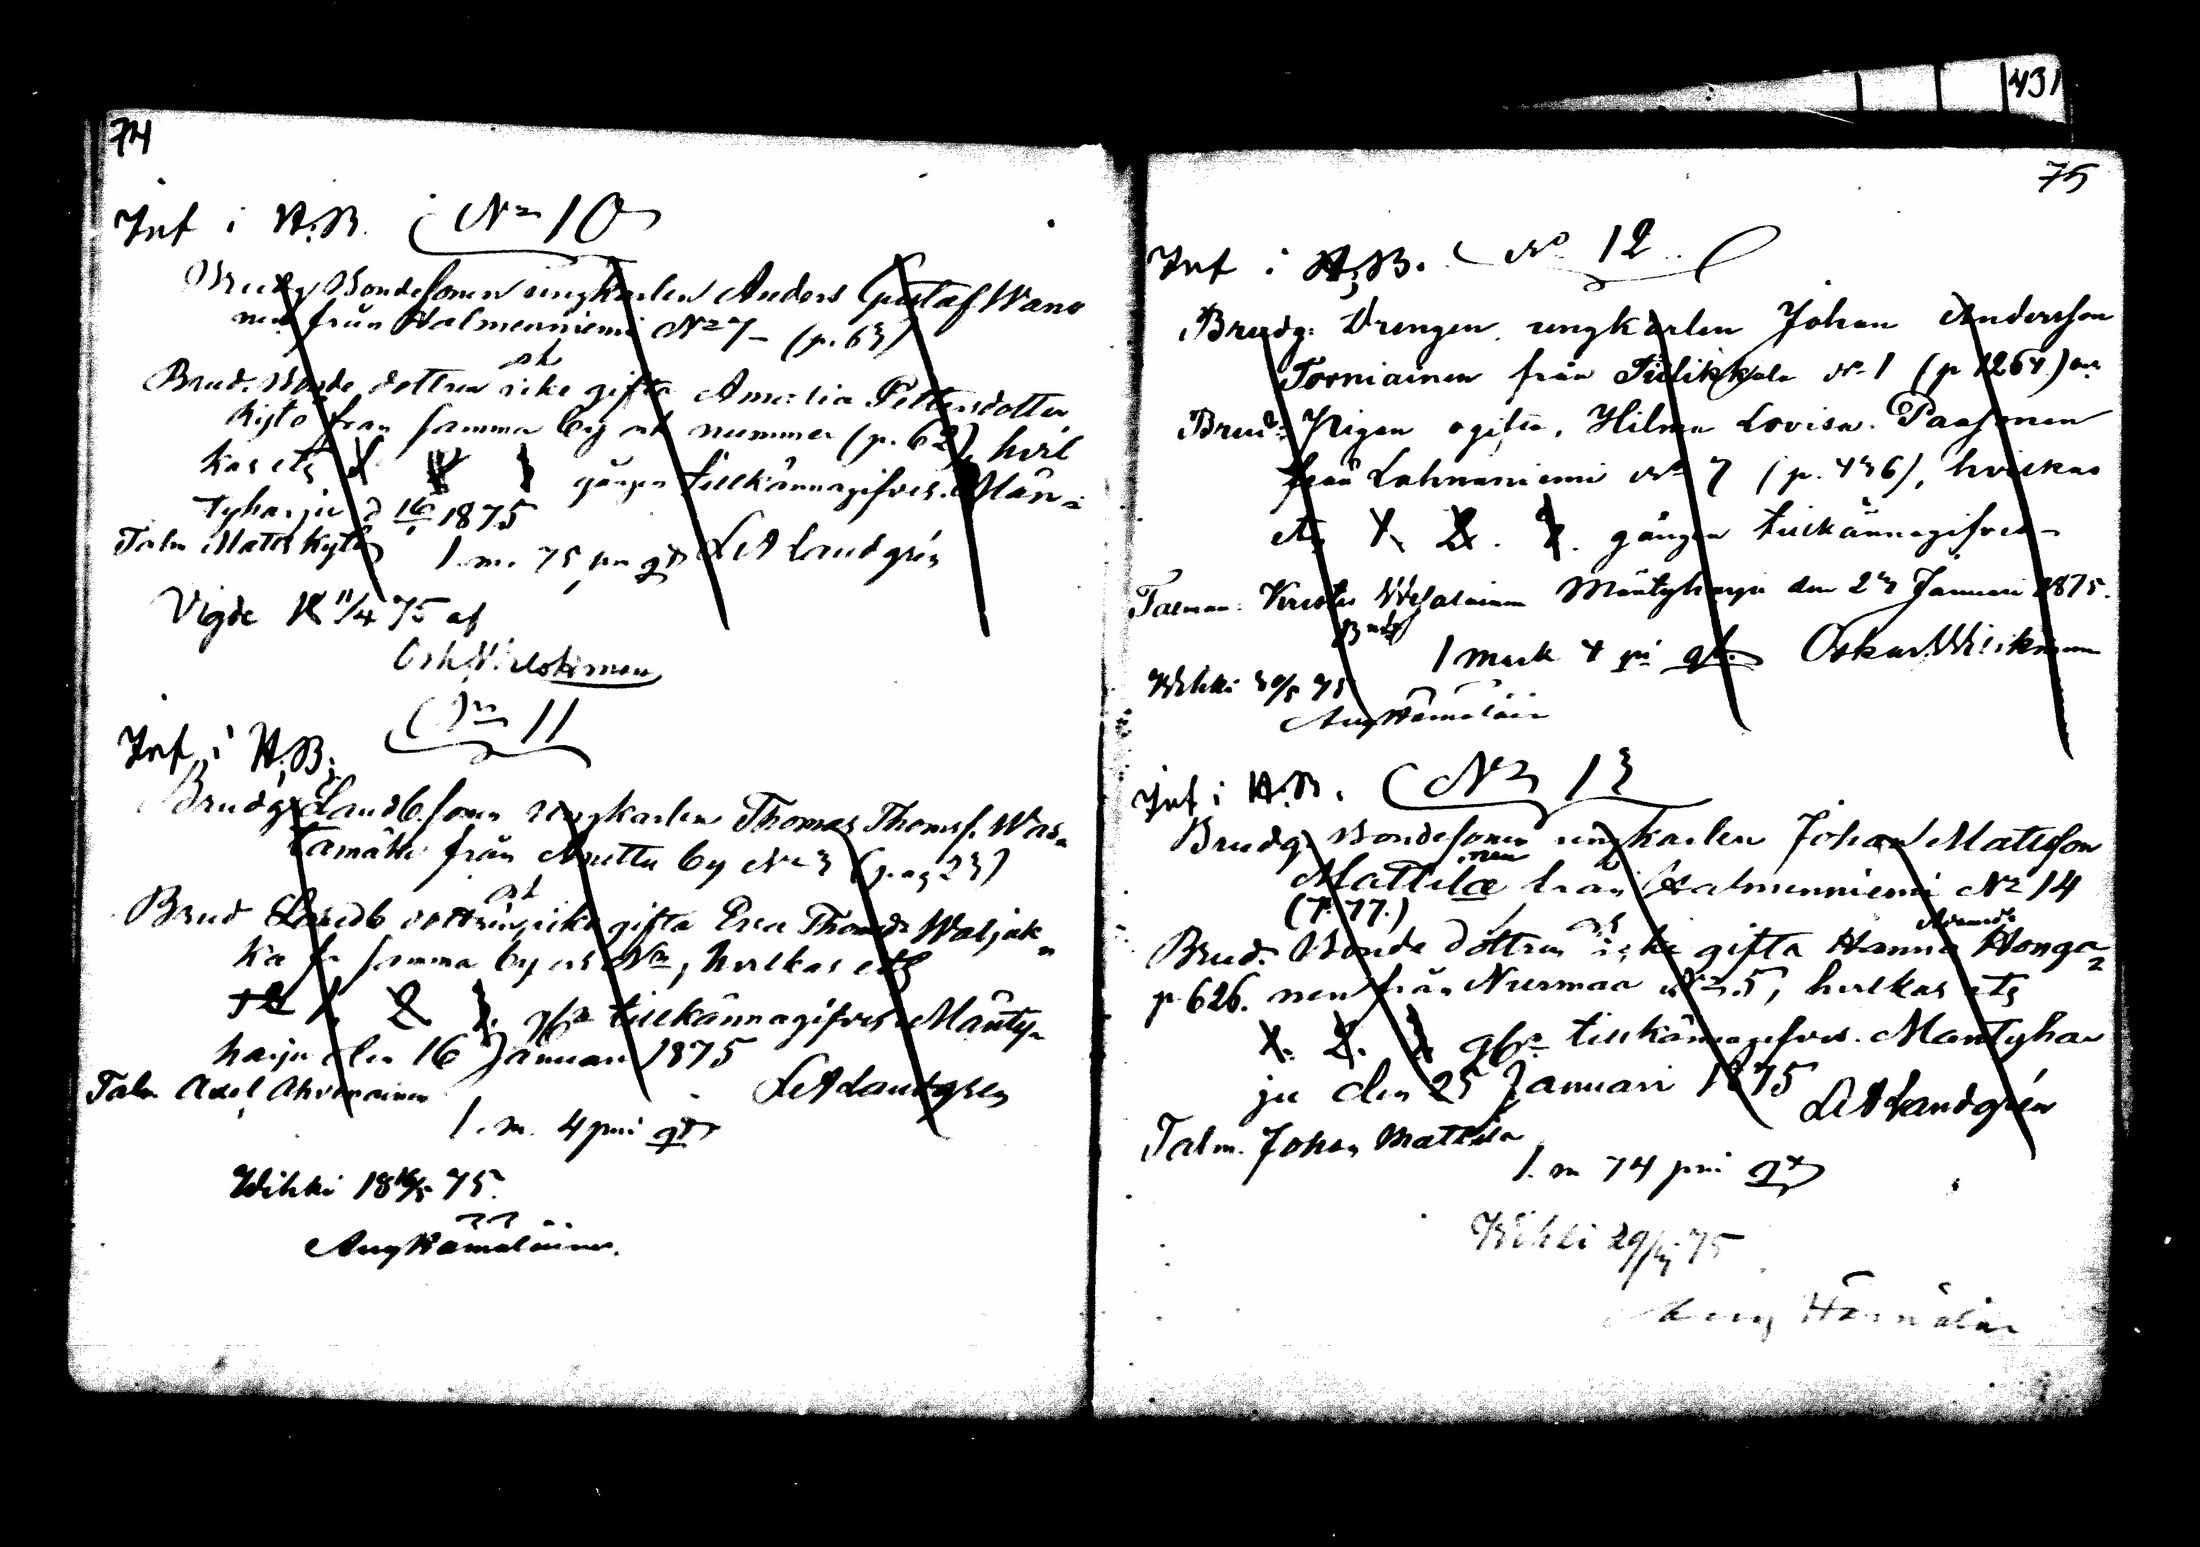 431
74
Inf i H.B. No 10
Brudg Bondesonen ungkarlen Anders Gustaf Wano
nen från Halmenniemi No 7 - (p. 63)
ok
Brud. Bonde dottren icke gifta Amalia Pettersdotter
från samma by och nummer (p. 62), hvil
kas etc 1 2 3 gången tillkännagifves. Män-
tyharju d 16 1875
Talm Mats Kyttö 1 m. 75 pni gt LA Landgrén
Vigde 11/4 75 af
Osk Wilskman
No 11
Inf i H.B.
Brudg Landb. sonen ungkarlen Thomas Thomss. Was-
tamäki från by No 3 (pag 23)
ok
Brud Landb dottren icke gifta Eva Thomsdr Waljak-
ka fr samma by och No, hvilkas etc
1. 2. 3. ggn tillkännagifves. Mänty-
harju den 16 Januari 1875
Talm Axel Ahvenainen LA Landgrén
1. m. 4 pni gt
Wihki 18 16/5 75.
Aug Hämäläinen.
75
Inf i H.B. No 12
Brudg: Drengen, ungkarlen Johan Andersson
Torniainen från No 1 (p 1264) och
Brud: Pigan ogifta, Hilma Lovisa Paasonen
från Lahnaniemi No 7 (p. 436), hvilkas
etc 1. 2. 3. gången tillkännagifves -
Talman: Mäntyharju den 23 Januari 1875.
1 mark 4 pi gt. Oskar Wilskman
Wihki 30/5 75
Aug Hämäläin
Inf i H.B. No 13
Brudg. Bondesonen ungkarlen Johan Mattsson
nen
Mattila från Halmenniemi No 14
(P. 77.)
ok
Brud. Bonde dottren icke gifta Hanna Honga-
p 626. nen från Nurmaa No 5, hvilkas etc
1. 2. 3 ggn tillkännagifves. Mantyhar
ju den 25 Januari 1875 LA Landgrén
Talm. Johan Mattila
1. m 74 pni gt
Wihki 29/ 75
Aug Hämäläin